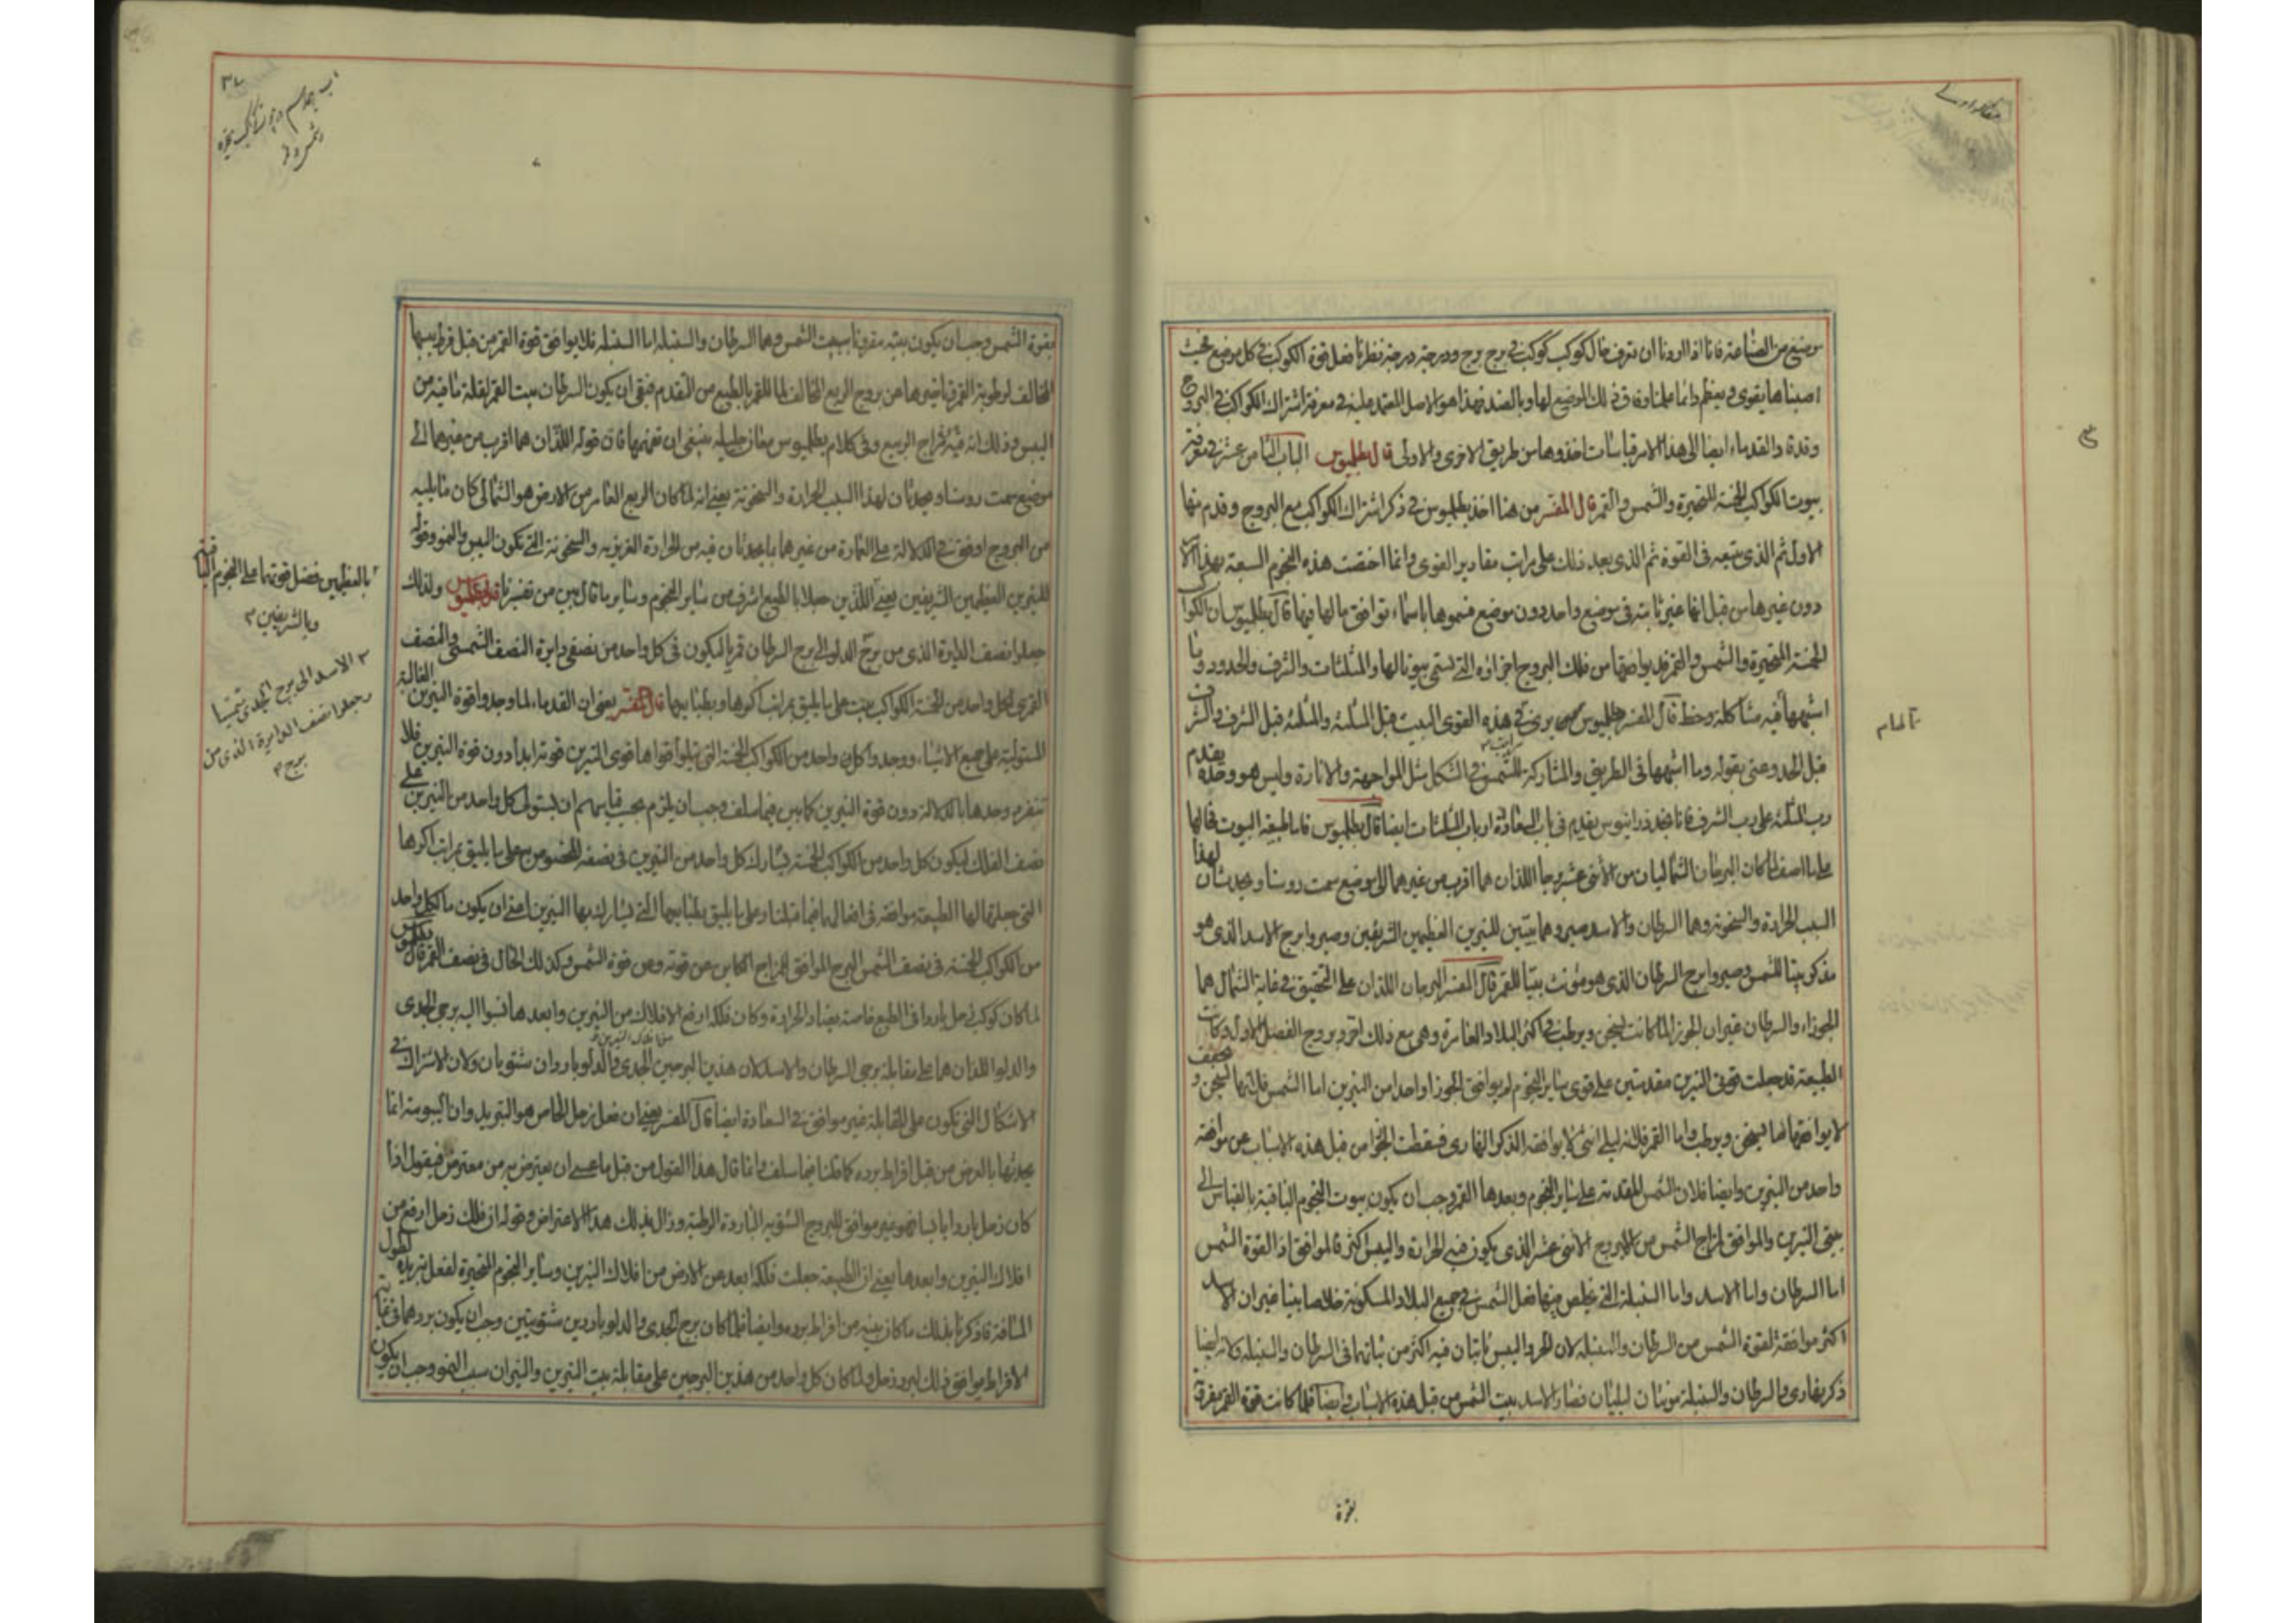 موضع من الصناعة فانا اذا اردنا ان نعرف حال كوكب كوكب في برج برج ودرجة درجة نظرنا فضل قوة الكوكب في كل موضع بحيث
اصبناها يقوى ويعظم دائما علمنا وفاق ذلك الموضع لها وبالضد فهذا هو الاصل المعتمد عليه في معرفة اشتراك الكواكب في البروج
وقد قاد القدماء ايضا الى هذا الامر قياسات اخذوها من طريق الاخرى والاولى قال بطلميوس الباب الثامن عشر في معرفة
بيوت الكواكب الخمسة المتحيرة والشمس والقمر قال المفسر من هنا اخذ بطلميوس في ذكر اشتراك الكواكب مع البروج وقدم منها
الاول ثم الذي يتبعه في القوة ثم الذي بعد ذلك على مراتب مقادير القوى وانما اختصت هذه النجوم السبعة بهذا
دون غيرها من قبل انها غير ثابتة في موضع واحد دون موضع فسموها باسماء توافق ما لها فيها قال بطلميوس ان الكواكب
الخمسة المتحيرة والشمس والقمر قد يوافقها من فلك البروج اجزاؤه التي تسمى بيوتا لها والمثلثات والشرف والحدود وما
اشبهها فيه مشاكلة وحظ قال المفسر بطلميوس يرى في هذه القوى البيت قبل المثلثة والمثلثة قبل الشرف والشرف
قبل الحد وعنى بقوله وما اشبهها في الطريق والمشاركة للشمس في الشكل مثل المواجهة والانارة وليس هو وحده يقدم
رب المثلثة على رب الشرف فانا نجد ذرانيوس يقدم في باب السعادة ارباب المثلثات ايضا قال بطلميوس فاما طبيعة البيوت فحالها
على ما اصف لما كان البرجان الشماليان من الاثنى عشر برجا اللذان هما اقرب من غيرهما الى موضع سمت روسنا ويحدثان لهذا
السبب الحرارة والسخونة وهما السرطان والاسد صيروهما بيتين للنيرين العظيمين الشريفين وصيروا برج الاسد الذي هو
مذكر بيتا للشمس وصيروا برج السرطان الذي هو مؤنث بيتا للقمر قال المفسر البرجان اللذان على التحقيق في غاية الشمال هما
الجوزاء والسرطان غير ان الجوزا لما كانت يسخن ويرطب في اكثر البلاد العامرة وهي مع ذلك اخر بروج الفصل الاول وكانت
الطبيعة قد جعلت قوتي النيرين مقدمتين على قوى ساير النجوم لم يوافق الجوزا واحدا من النيرين اما الشمس فلانها تسخن و تجفف
لا يوافقها ما يسخن ويرطب واما القمر فلانه ليلي انثى لا يوافقه الذكر النهاري فسقطت الجوزا من قبل هذه الاسباب عن موافقة
واحد من النيرين وايضا فلان الشمس المقدمة على ساير النجوم وبعدها القمر وجب ان يكون بيوت النجوم الباقية بالقياس الى
بيتي النيرين والموافق لمزاج الشمس من البروج الاثنى عشر الذي يكون فيه الحرارة واليبس اكثر فالموافق اذا لقوة الشمس
اما السرطان واما الاسد واما السنبلة التي يخلص فيها فعل الشمس في جميع البلاد المسكونة خلاصا بينا غير ان الاسد
اكثر موافقة لقوة الشمس من السرطان والسنبلة لان الحر واليبس ثابتان فيه اكثر من ثباتهما في السرطان والسنبلة ولانه ايضا
ذكر نهاري والسرطان والسنبلة مونثان ليليان فصار الاسد بيت الشمس من قبل هذه الاسباب وايضا فلما كانت قوة القمر مقرونة
بقوة
بقوة الشمس وجب ان يكون بيته مقرونا ببيت الشمس وهما السرطان والسنبلة اما السنبلة فلا يوافق قوة القمر من قبل فرط يبسها
المخالف لرطوبة القمر وتاخيرها عن بروج الربع المخالف لما للقمر بالطبع من التقدم فبقى ان يكون السرطان بيت القمر لقلة ما فيه من
اليبس وذلك انه فيه مزاج الربيع وفي كلام بطلميوس معان جليلة ينبغي ان نفهمها فان قوله اللذان هما اقرب من غيرهما الى
موضع سمت روسنا ويحدثان لهذا السبب الحرارة والسخونة يعني انه لما كان الربع العامر من الارض هو الشمالي كان ما يليه
من البروج اوفق في الدلالة على العمارة من غيرها بما يحدثان فيه من الحرارة الغريزية والسخونة التي تكون اليبس والنمو وقوله
للنيرين العظيمين الشريفين يعني اللذين جعلا بالطبع اشرف من ساير النجوم وساير ما قال بين من تفسيرنا قال بطلميوس ولذلك
جعلوا نصف الدايرة الذي من برج الدلو الى برج السرطان قمريا ليكون في كل واحد من نصفي دايرة النصف الشمسي والنصف
القمري لكل واحد من الخمسة الكواكب بيت على ما يليق بمراتب اكرها وبطبايعها قال المفسر يعني ان القدماء لما وجدوا قوة النيرين الغالبة
المستولية على جميع الاشياء ووجدوا كل واحد من الكواكب الخمسة التي تتلوا قواها قوى النيرين قوته ابدا دون قوة النيرين فلا
تنفرد وحدها بالدلالة دون قوة النيرين كما بين فيما سلف وجب ان يلزم بحسب قياسهم ان يستولى كل واحد من النيرين على
نصف الفلك ليكون كل واحد من الكواكب الخمسة يشارك كل واحد من النيرين في نصفه المخصوص به على ما يليق بمراتب اكرها
التي جعلتها لها الطبيعة موافقة في افعالها فيما قبلنا وعلى ما يليق بطبايعها التي يشارك بها النيرين اعني ان يكون ما لكل واحد
من الكواكب الخمسة في نصف الشمس البرج الموافق للمزاج الكاين عن قوته وعن قوة الشمس وكذلك الحال في نصف القمر قال بطلميوس
لما كان كوكب زحل باردا في الطبع خاصته يضاد الحرارة وكان فلكه ارفع الافلاك من النيرين وابعدها نسبوا اليه برجي الجدي
والدلو اللذان هما على مقابلة برجي السرطان والاسد لان هذين البرجين الجدي والدلو باردان شتويان ولان الاشتراك في
الاشكال التي تكون على المقابلة غير موافق في السعادة ايضا قال المفسر يعني ان فعل زحل الخاص هو التبريد وان اليبوسة انما
يحدثها بالعرض من قبل افراط برده كما قلنا فيما سلف وانما قال هذا القول من قبل ما عسى ان يعترض به من معترض فيقول اذا
كان زحل باردا يابسا فهو غير موافق للبروج الشتوية الباردة الرطبة وزال بذلك هذا الاعتراض وقوله ان فلك زحل ارفع من
افلاك النيرين وابعدها يعني ان الطبيعة جعلت فلكه ابعد عن الارض من افلاك النيرين وساير النجوم المتحيرة لفعل تبريده لطول
المسافة فاذكرنا بذلك ما كان بينه من افراط برده وايضا فلما كان برج الجدي والدلو باردين شتويين وجب ان يكون بردهما في غاية
الافراط موافق ذلك لبرد زحل ولما كان كل واحد من هذين البرجين على مقابلة بيت النيرين والنيران سبب النمو وجب ان يكون
بالعظيمين فضل قوتهما على النجوم الباقية
وبالشريفين
الاسد الى برج الجدي شمسيا
وجعلوا نصف الدايرة الذي من
برج